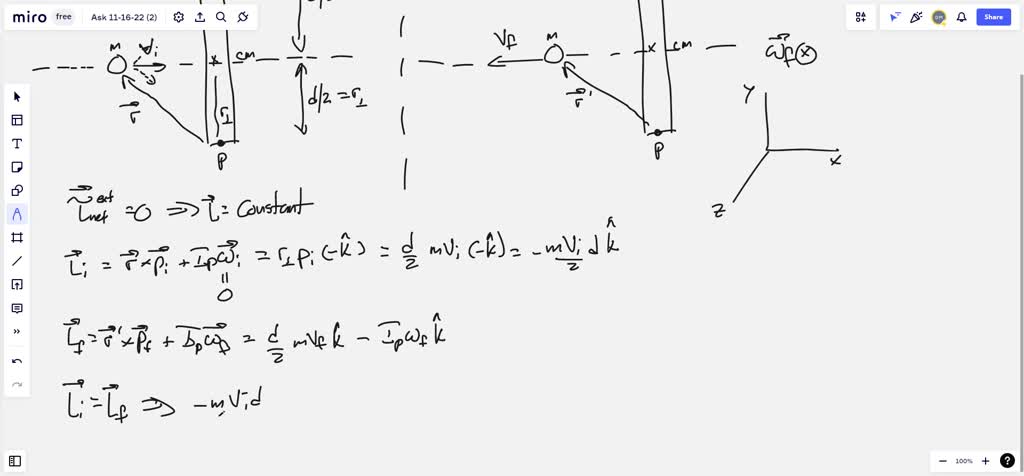 miro free Ask 11-16-22 (2) Share
M Vi cm d/2 = r⊥ r⊥ r⃗ P
Vf M cm r⃗' P ω⃗f ⊗
Y X Z
τ⃗ net ext = 0 ⇒ L⃗ = Constant
L⃗i = r⃗ × p⃗i + Ip ω⃗i = r⊥ pi (-k̂) = d/2 mVi (-k̂) = - mVi/2 d k̂
‖
0
L⃗f = r⃗' × p⃗f + Ip ω⃗f = d/2 mVf k̂ - Ip ωf k̂
L⃗i = L⃗f ⇒ - mVi d
100%